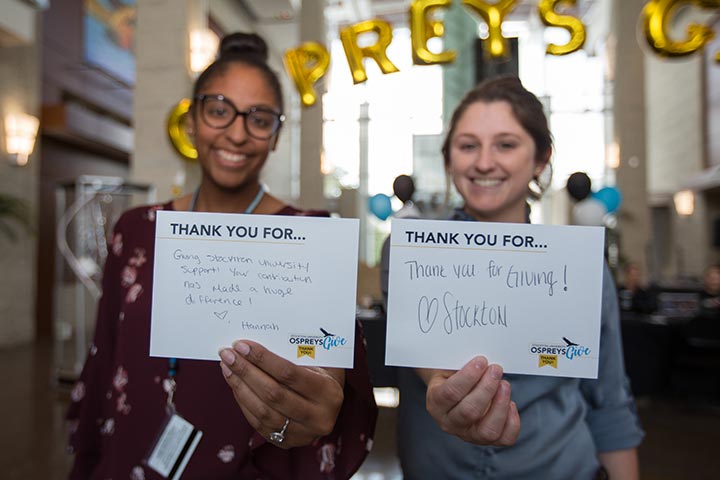 OSPREYS G
THANK YOU FOR...
Giving Stockton University
Support! Your contribution
has made a huge
difference!
♡, Hannah
STOCKTON UNIVERSITY
OSPREYS Give
THANK YOU!
THANK YOU FOR...
Thank you for Giving!
♡ Stockton
OSPREYS Give
THANK YOU!